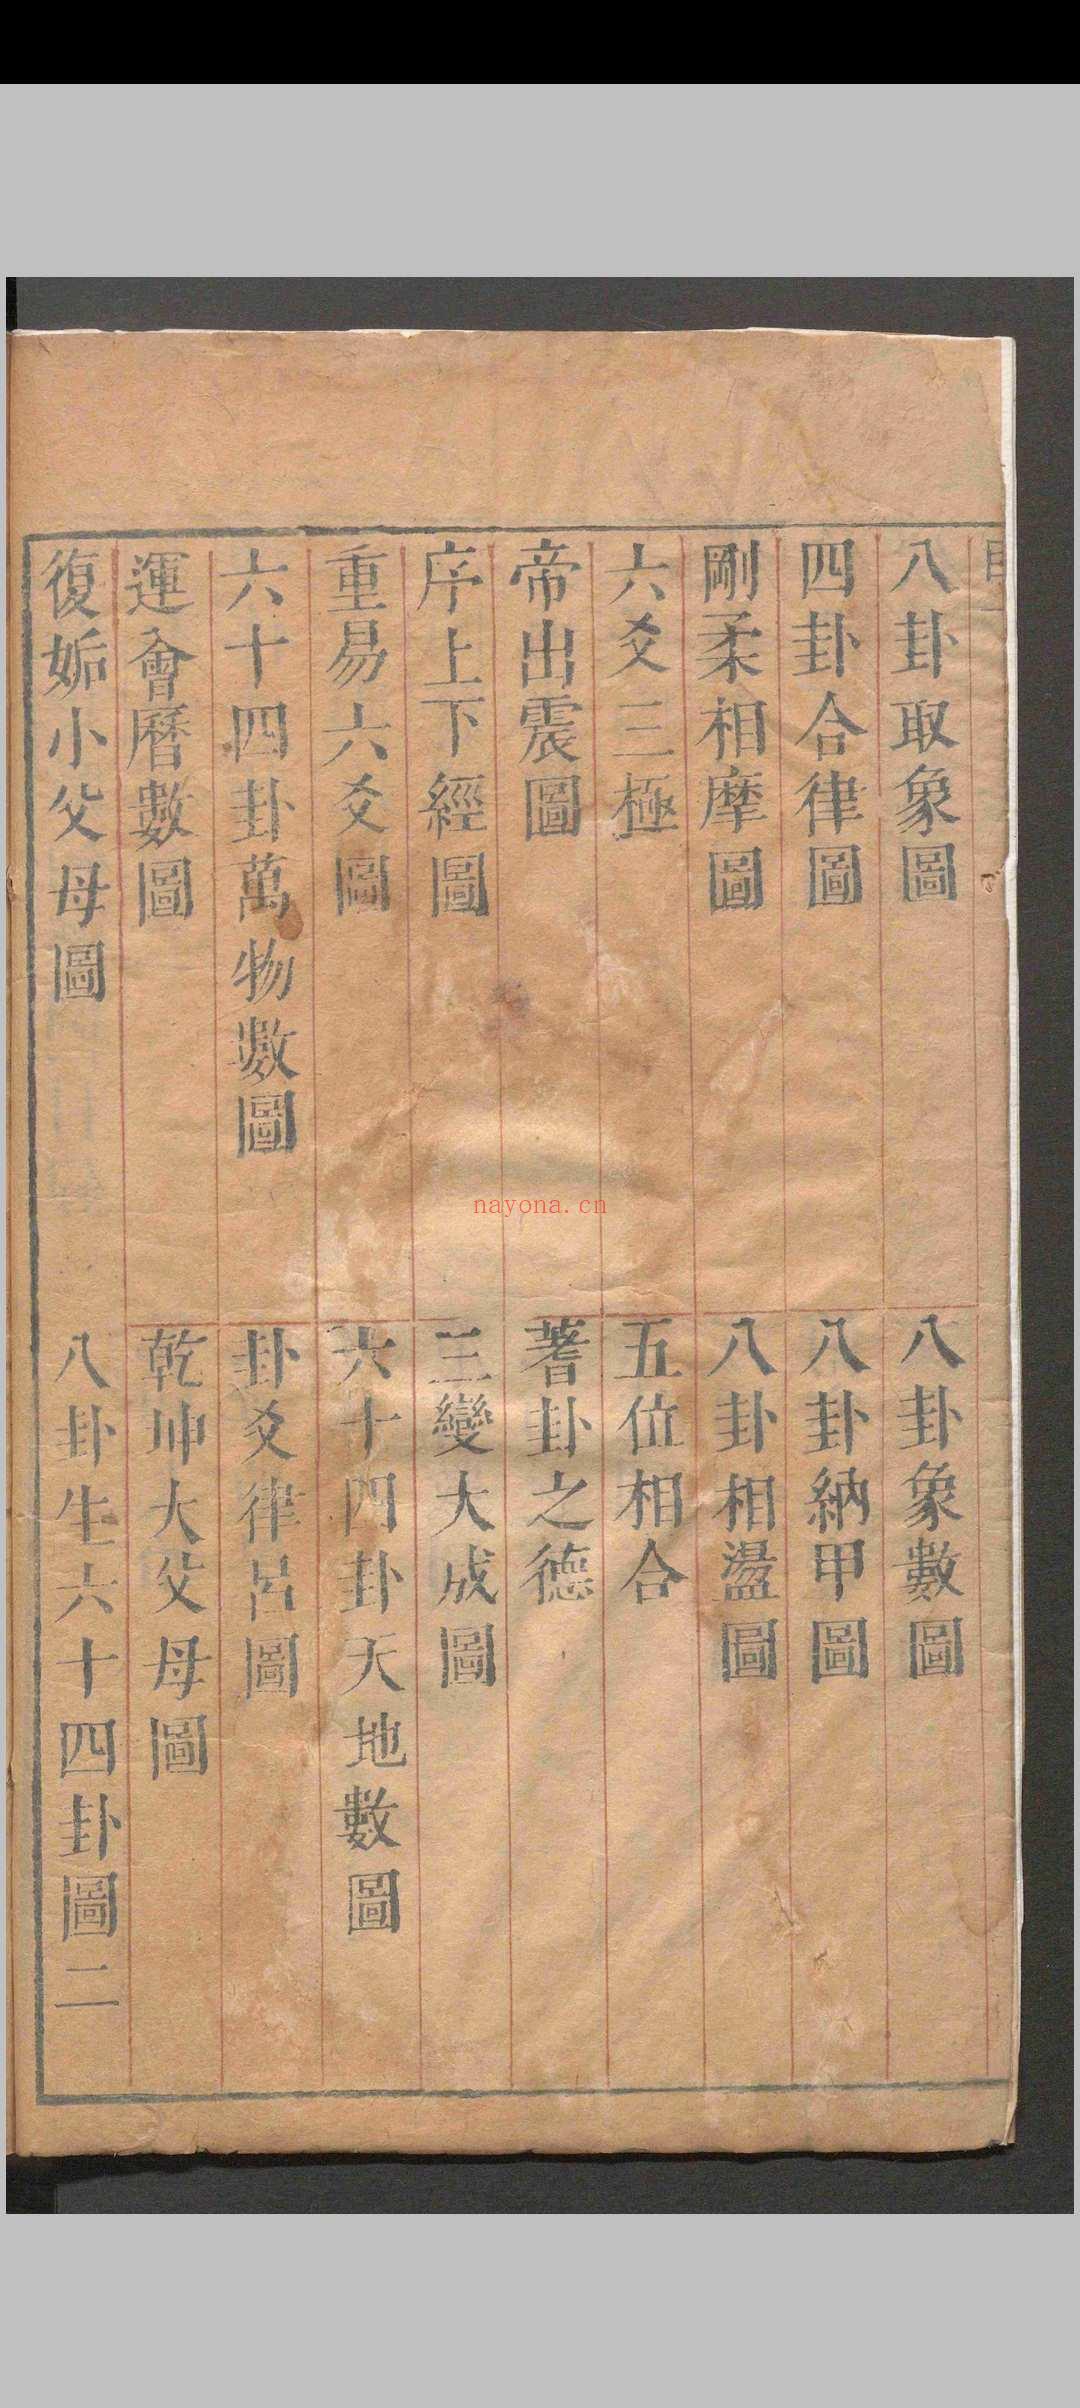 八卦取象圖
八卦象數圖
四卦合律圖
八卦納甲圖
剛柔相摩圖
八卦相盪圖
六爻三極
五位相合
帝出震圖
蓍卦之德
序上下經圖
三變大成圖
重易六爻圖
六十四卦天地數圖
六十四卦萬物數圖
卦爻律呂圖
運會曆數圖
乾坤大父母圖
復姤小父母圖
八卦生六十四卦圖二
nayona.cn